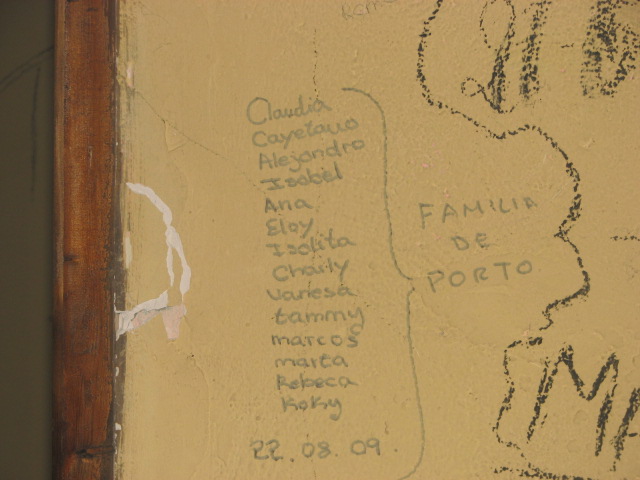 Claudia
Cayetano
Alejandro
Isabel
Ana
Eloy
Isolita
Charly
Vanesa
tammy
marcos
marta
Rebeca
Koky
22.08.09.
FAMILIA
DE
PORTO